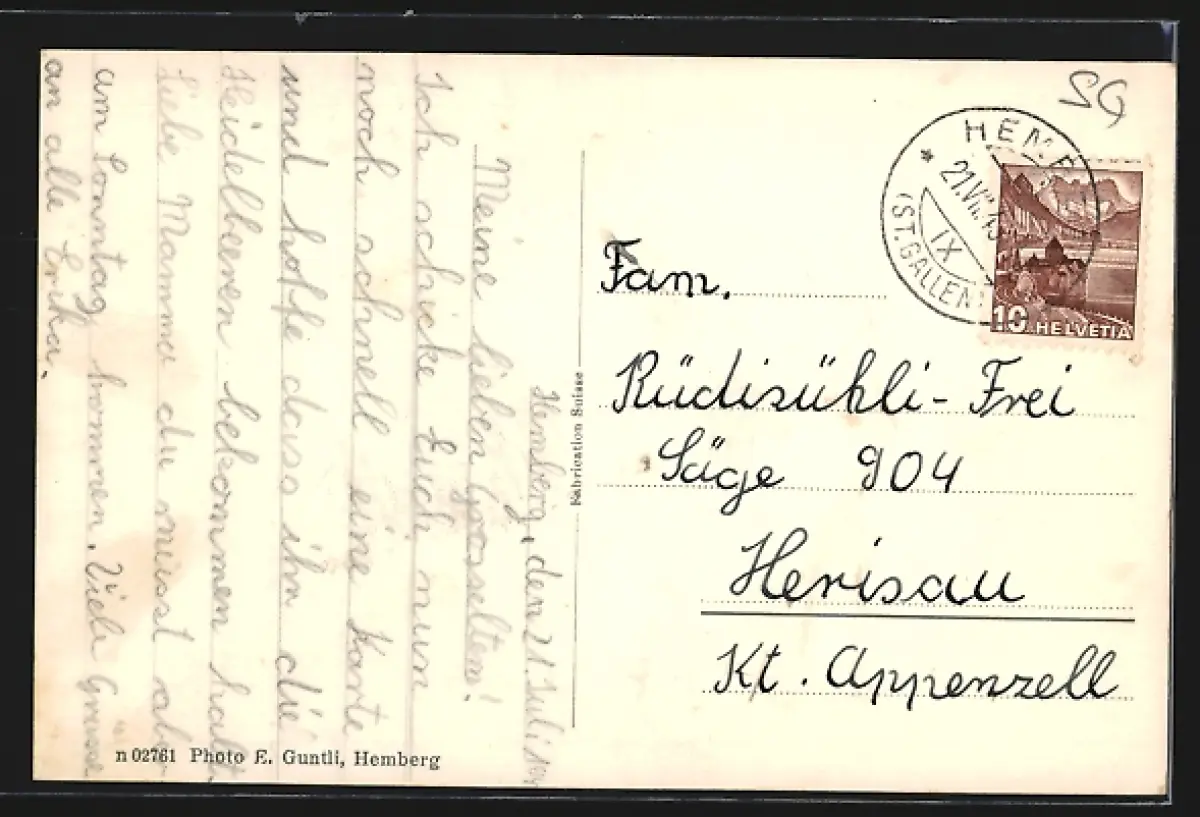 Hemberg, den 21. Juli
Meine lieben Grosseltern!
Ich schicke Euch nun
noch schnell eine Karte
und hoffe dass ihr die
Heidelbeeren bekommen habt
Liebe Mamma du müsst aber
am Sonntag kommen. Viele Grüsse
an alle Erika.
Fabrication Suisse
n 02761 Photo E. Guntli, Hemberg
SG
21.VII.
IX
(ST. GALLEN)
10 HELVETIA
Fam.
Rüdisühli-Frei
Säge 904
Herisau
Kt. Appenzell